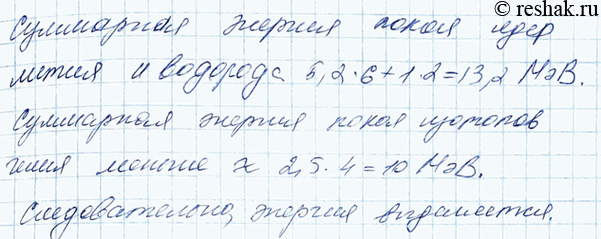 © reshak.ru
Суммарная энергия покоя ядер
лития и водорода 5,2·6+1·2=13,2 МэВ.
Суммарная энергия покоя изотопов
гелия меньше 2,5·4=10 МэВ.
Следовательно, энергия выделяется.